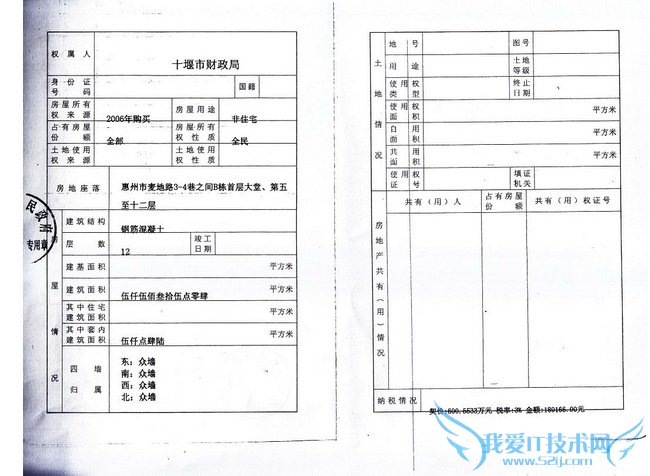 权属人
十堰市财政局
身份证号码
国籍
房屋所有权来源
2006年购买
房屋用途
非住宅
占有房屋份额
全部
房屋所有权性质
全民
土地使用权来源
土地使用权性质
房地座落
惠州市麦地路3-4巷之间B栋首层大堂、第五
至十二层
房屋情况
建筑结构
钢筋混凝土
层数
12
竣工日期
建基面积
平方米
建筑面积
伍仟伍佰叁拾伍点零肆
平方米
其中住宅建筑面积
平方米
其中套内建筑面积
伍仟点肆陆
平方米
四墙归属
东：众墙
南：众墙
西：众墙
北：众墙
民政府
专用章
土地情况
地号
图号
用途
土地等级
使用权类型
终止日期
使用权面积
平方米
自用面积
平方米
共用面积
平方米
使用权证号
填证机关
房地产共有（用）情况
共有（用）人
占有房屋份额
共有（用）权证号
纳税情况
契价:600.5533万元 税率:3% 金额:180166.00元
我爱IT技术网
www.52ij.com